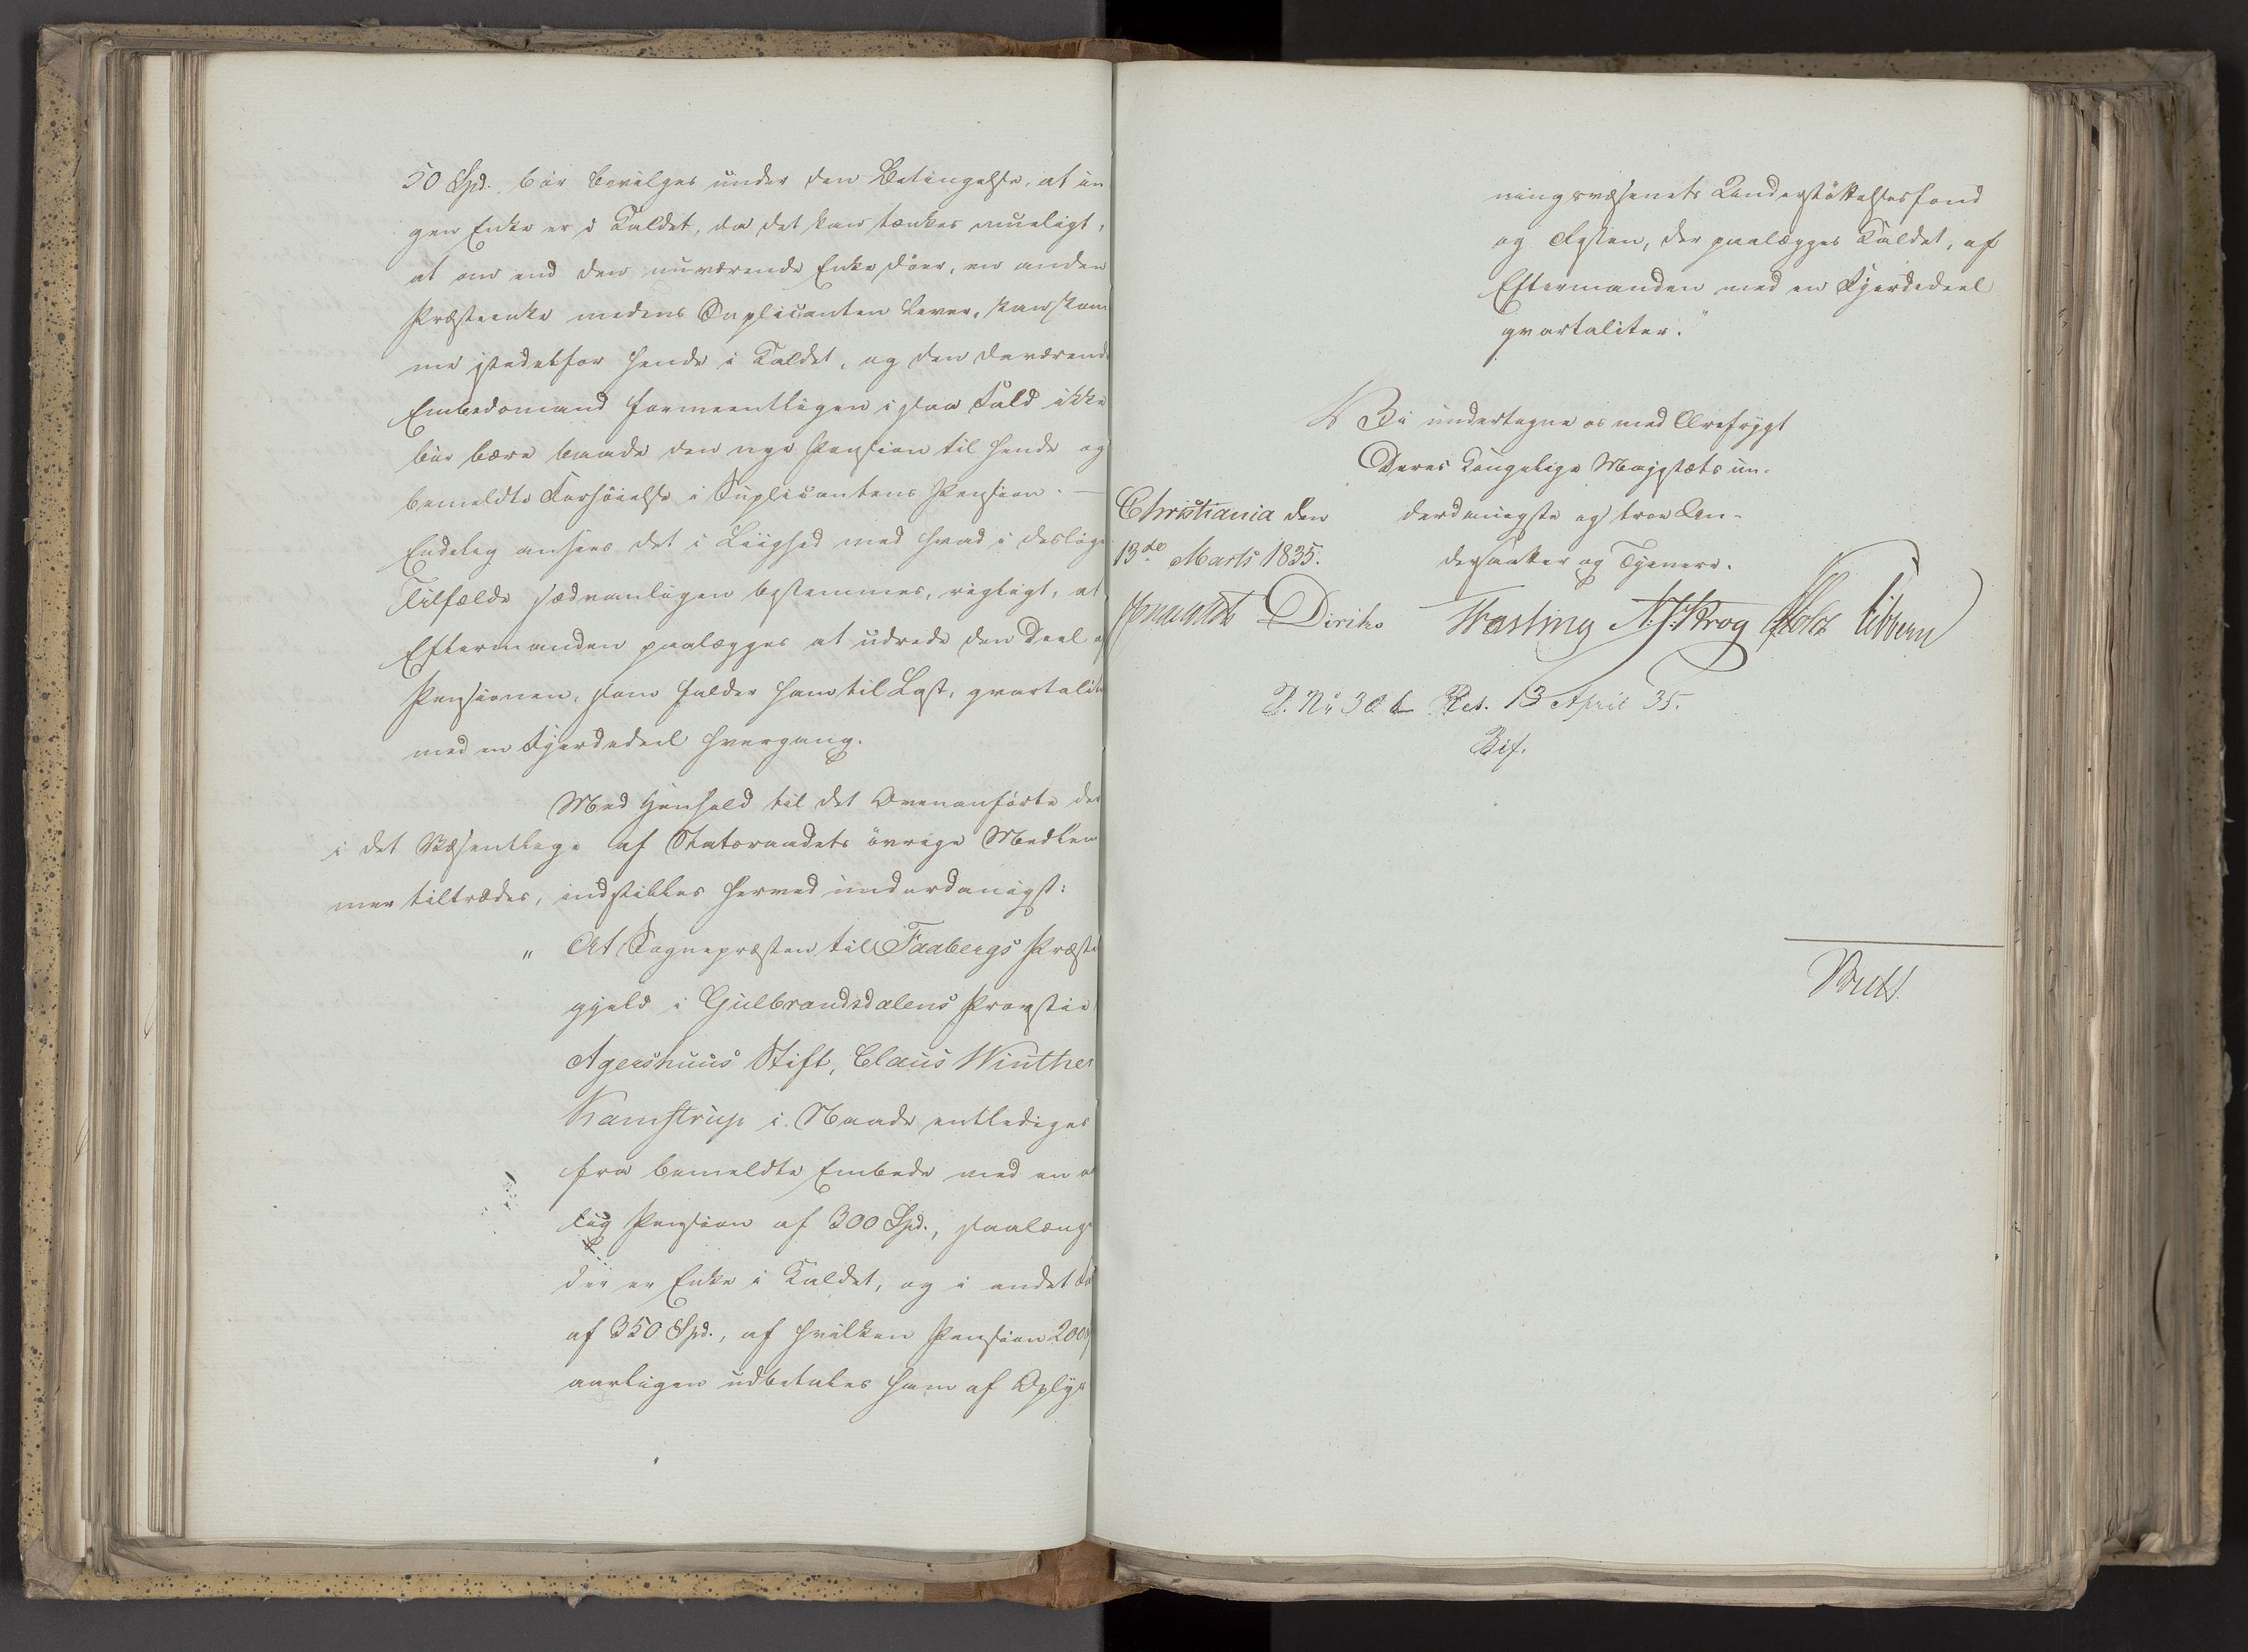 50 Spd. bør bevilges under den Betingelse, at in-
gen Enke er i Kaldet, da det kan tænkes mueligt,
at om end den nuværende Enke döer, en anden
Præsteenke medens Suplicanten lever, kan kom
me istedetfor hende i Kaldet, og den daværende
Embedsmand formeentligen i saa Fald ikke
bör bære baade den nye Pension til hende og
bemeldte Forhöielse i Suplicantens Pension. —
Endelig ansees det i Liighed med hvad i deslige
Tilfælde sædvanligen bestemmes, rigtigt, at
Eftermanden paalægges at udrede den Deel af
Pensionen, som falder ham til Last, qvartaliter
med en Fjerdedeel hvergang.
Med Henhold til det Ovenanförte der
i det Væsentlige af Statsraadets övrige Medlem
mer tiltrædes, indstilles herved underdanigst:
" At Sognepræsten til Faabergs Præste
gjeld i Gulbrandsdalens Provstie
Agershuus Stift, Claus Winther
Kamstrup i Naade entlediges
fra bemeldte Embede med en aar
lig Pension af 300 Spd., saalænge
der er Enke i Kaldet, og i andet Fa
af 350 Spd., af hvilken Pension 200
aarligen udbetales ham af Oplys
ningsvæsenets Understöttelsesfond
og Resten, der paalægges Kaldet, af
Eftermanden med en Fjerdedeel
qvartaliter."
Vi undertegne os med Ærefrygt
Deres Kongelige Majestæts un-
derdanigste og troe Un-
dersaatter og Tjenere.
Christiania den
13de Marts 1835.
Diriks Fasting N. J. Krog Holst Sibbern
J. No 306 Res. 13 April 35.
Bif.